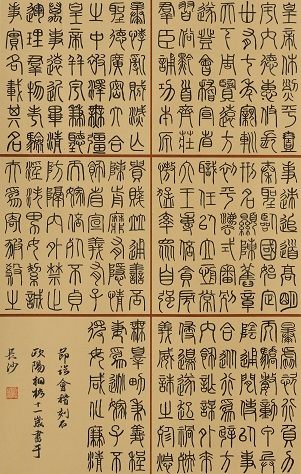 皇帝休烈平一
宇內德惠攸長
卅有七年親巡
天下周覽遠方
遂登會稽宣省
習俗黔首齊莊
群臣誦功本原
事迹追道高明
秦聖臨國始定
刑名顯陳舊章
初平法式審別
職任以立恒常
六王專倍貪戾
慠猛率眾自強
暴虐恣行負力
而驕數動甲兵
陰通間使以事
合從行為辟方
內飾詐謀外來
侵邊遂起禍殃
義威誅之殄熄
暴悖亂賊滅亡
聖德廣密六合
之中被澤無疆
皇帝并宇兼聽
萬事遠近畢清
運理群物考驗
事實各載其名
貴賤並通善否
陳前靡有隱情
飾省宣義有子
而嫁倍死不貞
防隔內外禁止
淫佚男女絜誠
夫為寄豭殺之
無辠男秉義程
妻為逃嫁子不
得母咸化廉清
節臨會稽刻石
歐陽桐 十一歲書于
長沙